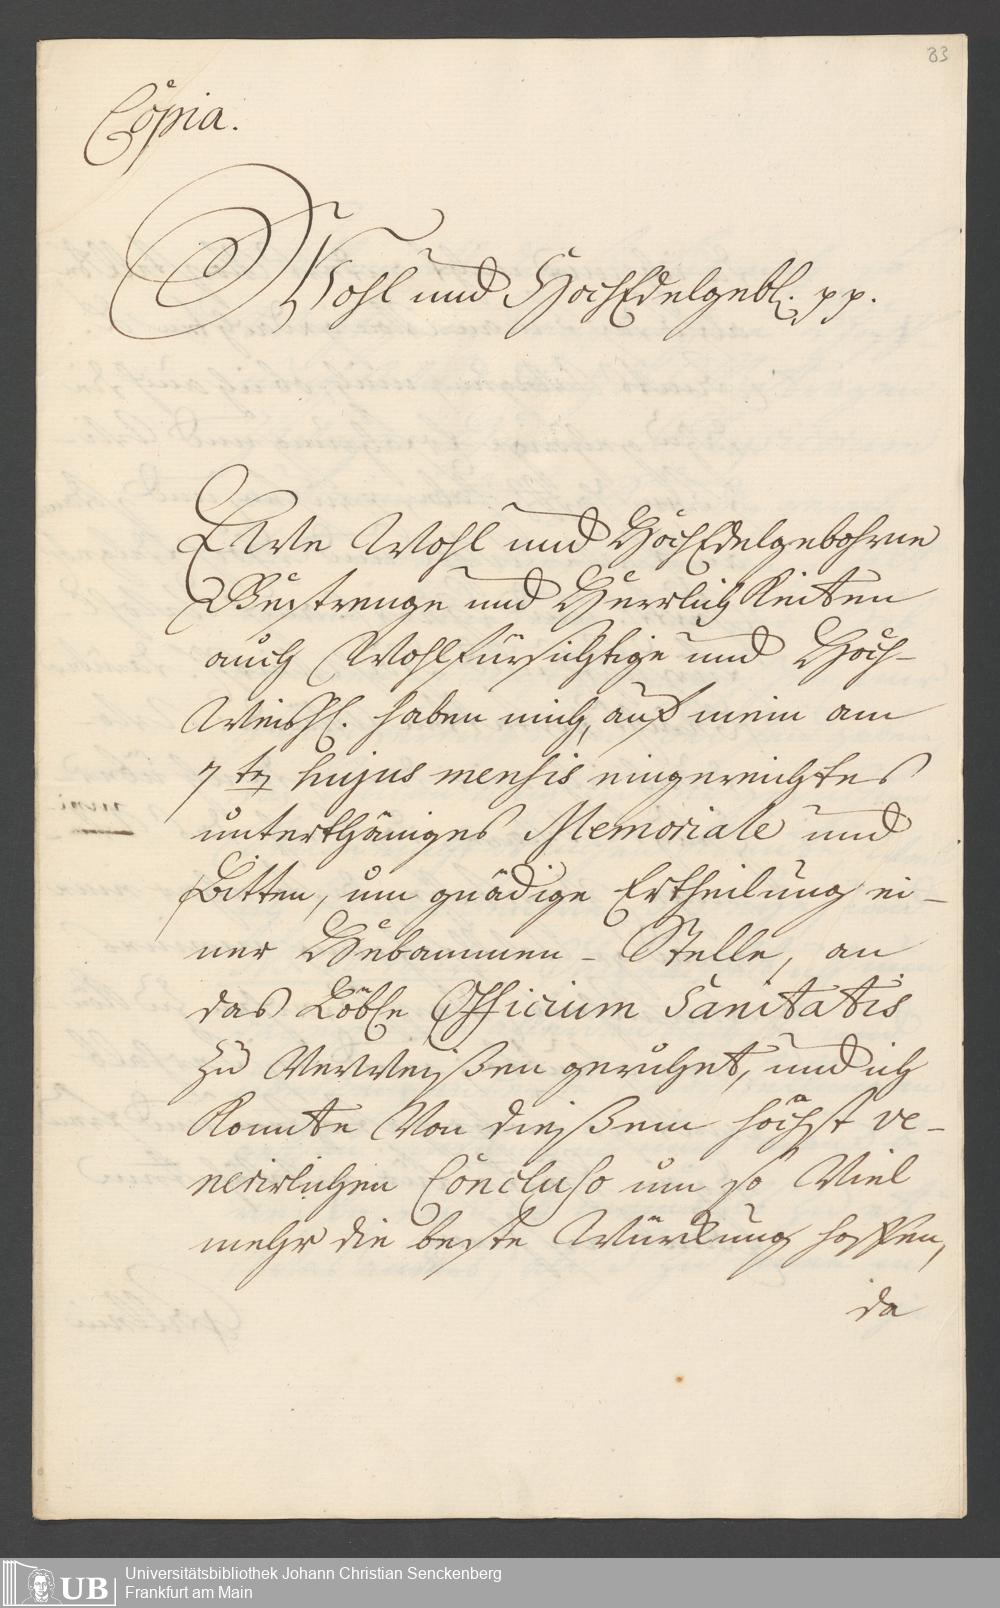 83
Copia.
Wohl und HochEdelgebl. pp.
EWe Wohl und HochEdelgebohrne
Gestrenge und Herrlichkeiten
auch Wohlfürsichtige und Hoch-
Weißhl. haben mich, auf mein am
7ten hujus mensis eingereichtes
unterthäniges Memoriale und
Bitten, um gnädige Ertheilung ei-
ner Hebammen-Stelle, an
das Löbl. Officium Sanitatis
zu verweißen geruhet, und ich
konnte von dießem höchst ve-
nerirlichen Concluso um so viel
mehr die beste Würckung hoffen,
da
UB Universitätsbibliothek Johann Christian Senckenberg
Frankfurt am Main